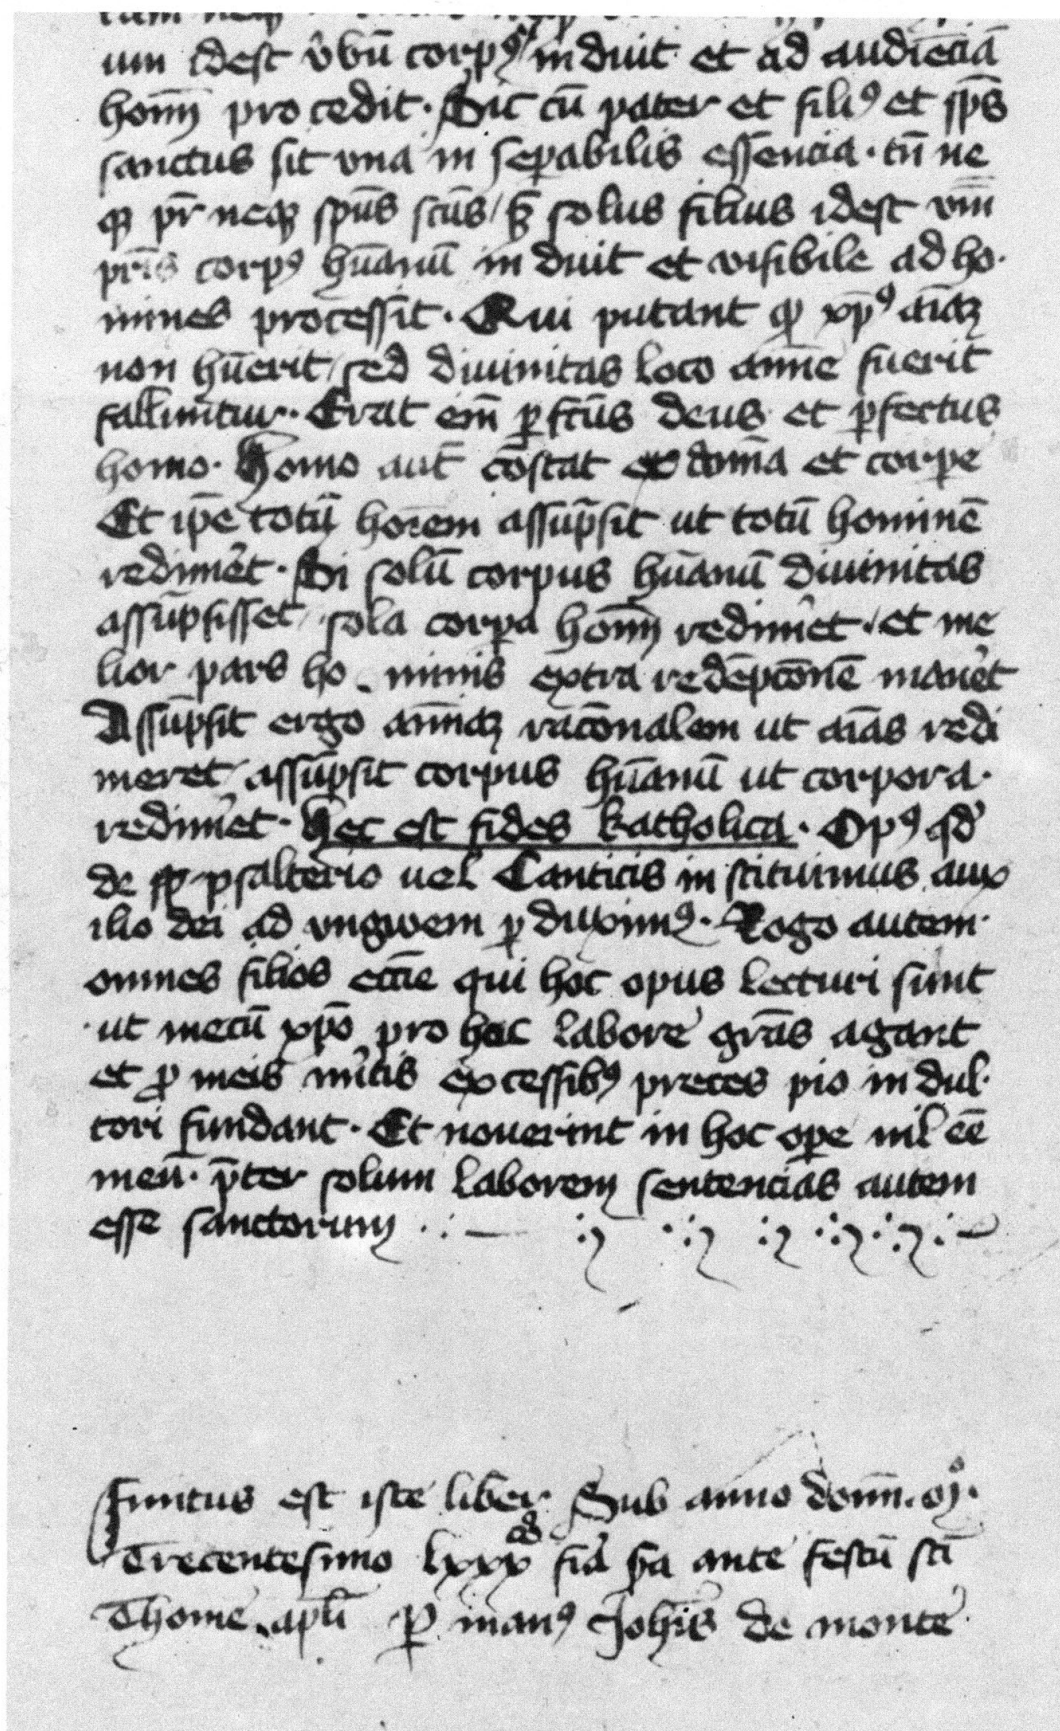 um idest v̉bū corpꝰ induit et ad audiēciā
hom̄ procedit. Sic cū pater et filiꝰ et sp̄s
sanctus sit vna in seꝑabilis essencia. tn̄ ne
qꝫ pr̄ neqꝫ spūs scūs / sꝫ solus filius idest vm̄
pr̄is corpꝰ hūanū induit et visibile ad ho.
mines processit. Qui putant ꝙ xp̄ꝰ aīaꝫ
non hūerit / sed diuinitas loco anīe fuerit
falluntur. Erat em̄ ꝑfcūs deus et ꝑfectus
homo. Homo aut̄ cōstat ex anīa et corꝑe
Et ip̄e totū horēm assūpsit ut totū hominē
redimet̉. Si solū corpus hūanū diuinitas
assūpsisset / sola corꝑa hom̄ redimet̉. et me
lior pars ho minis extra redēpcōnē manet̉
Assūpsit ergo anīaꝫ racōnalem ut aīas redi
meret / assūpsit corpus hūanū ut corpora.
redimet̉. hec est fides katholica. Opꝰ qd̉
de psalterio uel Canticis in stituimus aux
ilio dei ad vngwem ꝑduximꝰ. Rogo autem.
omnes filios eccīe qui hoc opus lecturi sunt
ut mecū xp̄o pro hac labore gr̄as agant
et ꝓ meis m̉ltis excessibꝰ preces pio indul.
tori fundant. Et nouerint in hoc oꝑe nil eē
meū. p̄ter solum laborem sentencias autem
esse sanctorum
Finitus est iste liber Sub anno domī. mͦ.
Trecentesimo lxxx fiả ante festū scī
Thome apl̄i ꝑ manꝰ Johīs de monte